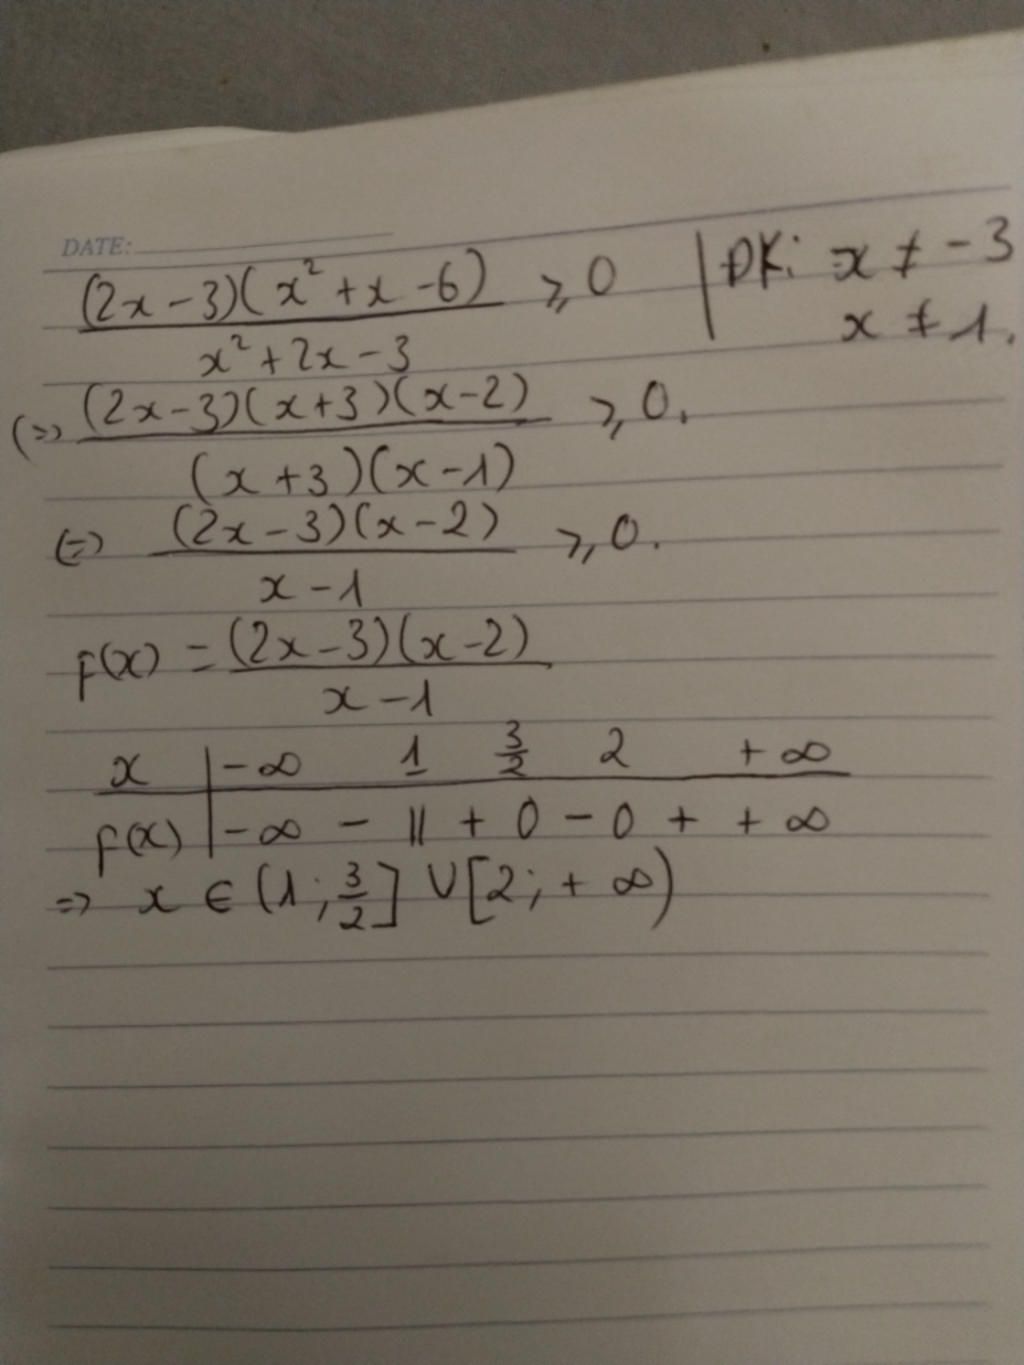 DATE:
(2x-3)(x²+x-6) / x²+2x-3 ≥ 0 | ĐK: x ≠ -3
x ≠ 1.
(=> (2x-3)(x+3)(x-2) / (x+3)(x-1) ≥ 0.
(=) (2x-3)(x-2) / x-1 ≥ 0.
f(x) = (2x-3)(x-2) / x-1
x | -∞ 1 3/2 2 +∞
f(x) | -∞ - || + 0 - 0 + +∞
=> x ∈ (1; 3/2] ∪ [2; +∞)